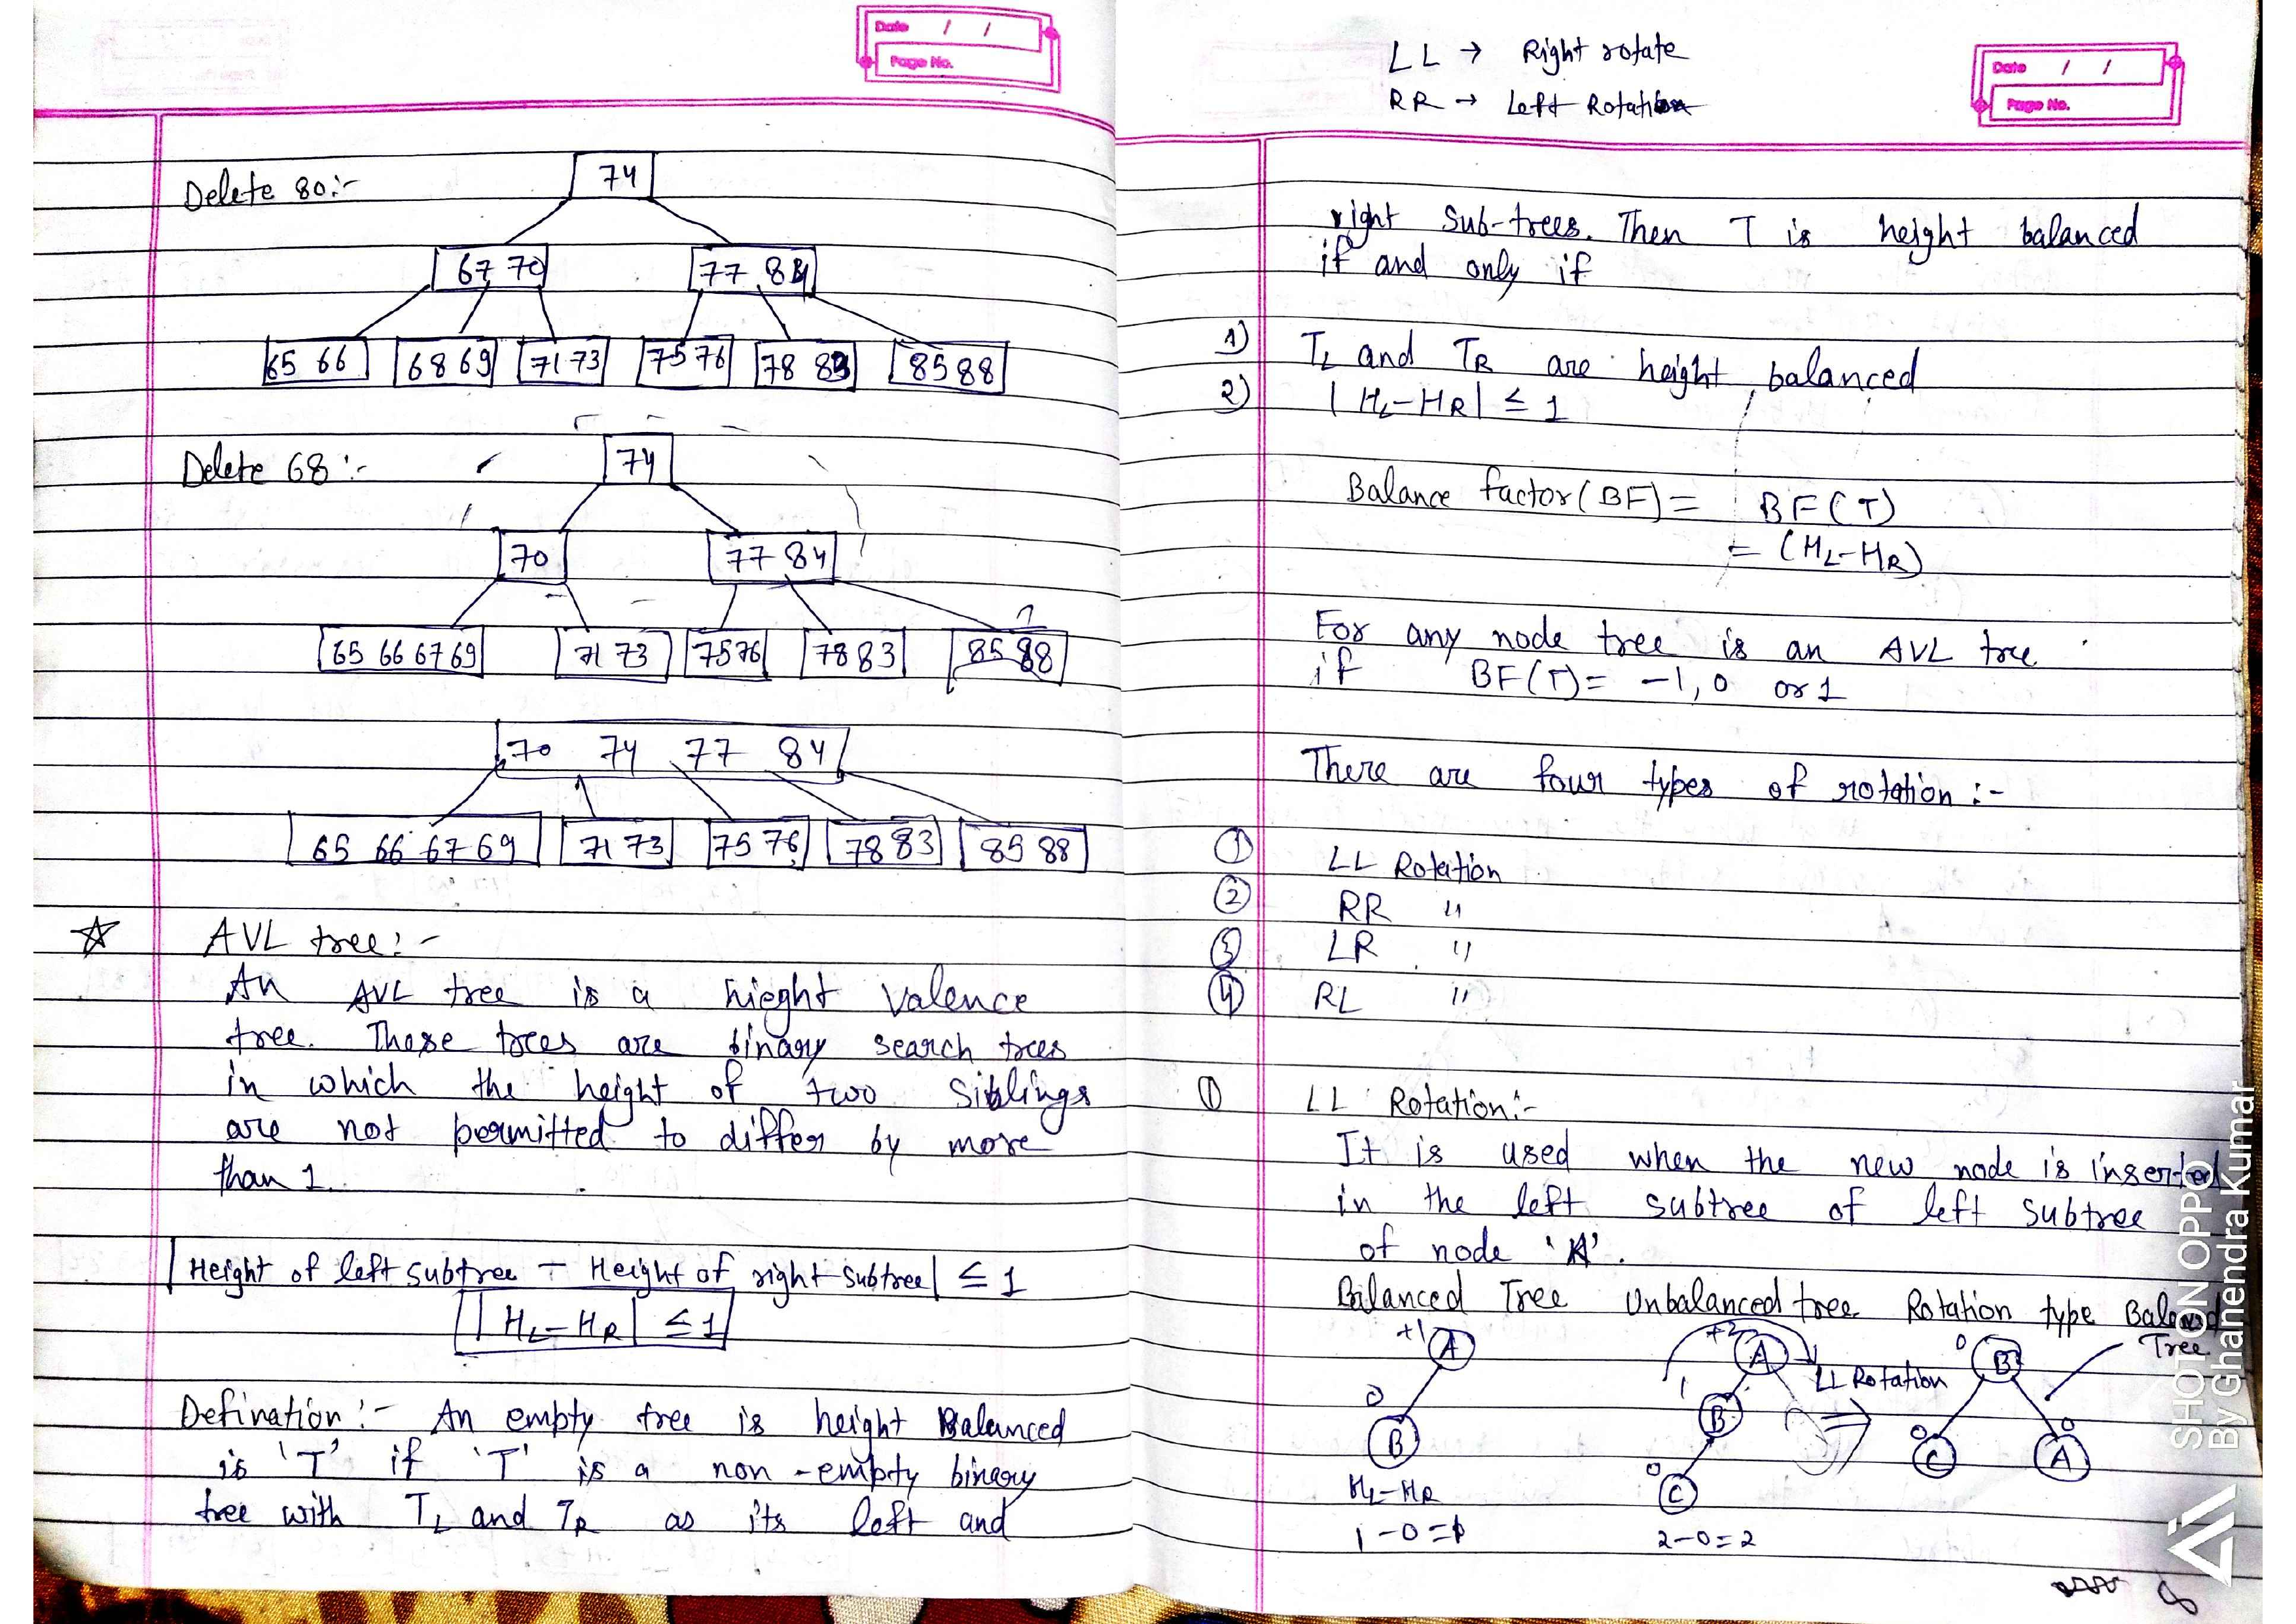 Date / /
Page No.
Delete 80:-
74
67 70
77 84
65 66
68 69
71 73
75 76
78 83
85 88
Delete 68:-
74
70
77 84
65 66 67 69
71 73
75 76
78 83
85 88
70 74 77 84
65 66 67 69
71 73
75 76
78 83
85 88
☆ AVL tree:-
An AVL tree is a hieght valence
tree. These trees are binary search trees
in which the height of two siblings
are not permitted to differ by more
than 1.
|Height of left subtree - Height of right subtree| ≤ 1
|HL-HR| ≤ 1
Defination:- An empty tree is height Balanced
is 'T' if 'T' is a non-empty binary
tree with TL and TR as its left and
LL → Right rotate
RR → Left Rotation
Date / /
Page No.
right Sub-trees. Then T is height balanced
if and only if
1) TL and TR are height balanced
2) |HL-HR| ≤ 1
Balance factor(BF) = BF(T)
= (HL-HR)
For any node tree is an AVL tree
if BF(T)= -1, 0 or 1
There are four types of rotation:-
① LL Rotation
② RR "
③ LR "
④ RL "
① LL Rotation:-
It is used when the new node is inserted
in the left subtree of left subtree
of node 'A'.
Balanced Tree Unbalanced tree Rotation type Balanced
Tree
+1 A
0 B
HL-HR
1-0=1
+2 A
1 B
0 C
2-0=2
LL Rotation
0 B
0 C
0 A
SHOT ON OPPO
By Ghanendra Kumar